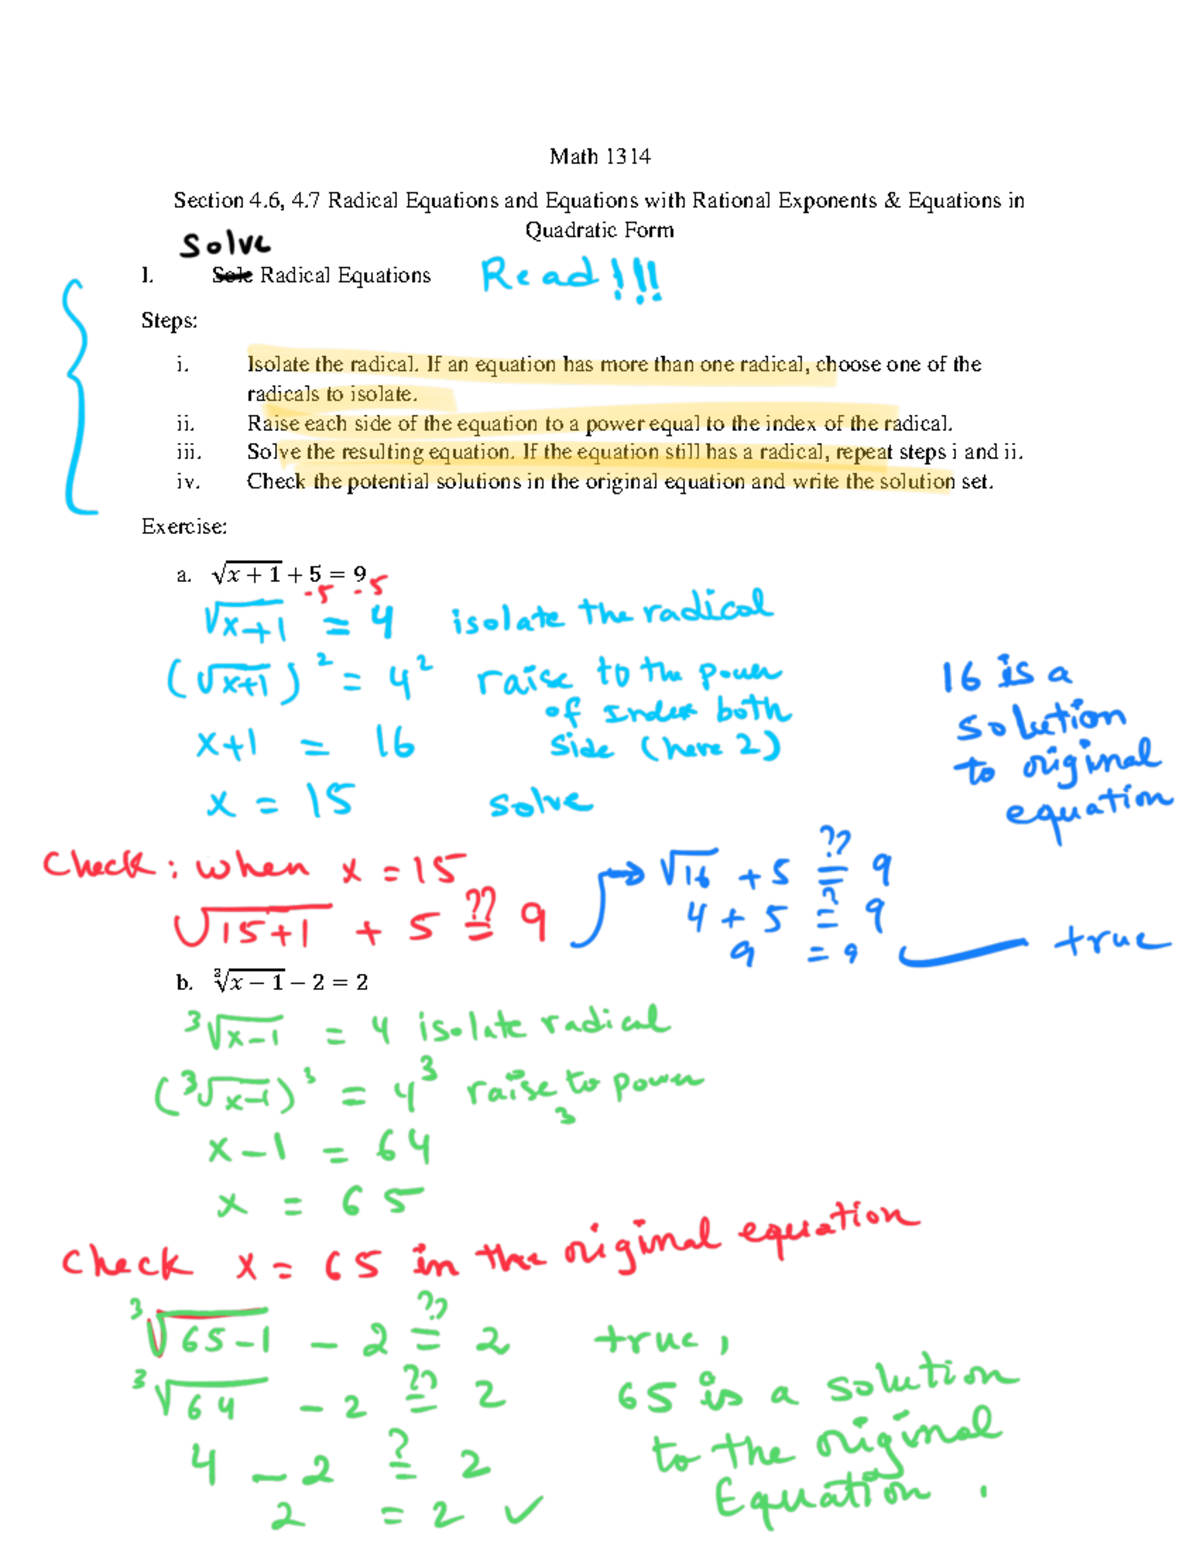 Math 1314
Section 4.6, 4.7 Radical Equations and Equations with Rational Exponents & Equations in
Quadratic Form
Solve
I. Sole Radical Equations Read!!!
Steps:
i. Isolate the radical. If an equation has more than one radical, choose one of the
radicals to isolate.
ii. Raise each side of the equation to a power equal to the index of the radical.
iii. Solve the resulting equation. If the equation still has a radical, repeat steps i and ii.
iv. Check the potential solutions in the original equation and write the solution set.
Exercise:
a. √(x + 1) + 5 = 9
-5 -5
√(x+1) = 4 isolate the radical
(√(x+1))² = 4² raise to the power
of Index both
x+1 = 16 side (here 2)
x = 15 solve
16 is a
solution
to original
equation
Check: when x = 15
√(15+1) + 5 ??= 9
√16 + 5 ??= 9
4 + 5 ?= 9
9 = 9 true
b. ³√(x − 1) − 2 = 2
³√(x-1) = 4 isolate radical
(³√(x-1))³ = 4³ raise to power
3
x-1 = 64
x = 65
Check x = 65 in the original equation
³√(65-1) - 2 ??= 2 true,
³√64 - 2 ??= 2 65 is a solution
4 - 2 ?= 2 to the original
2 = 2 ✓ Equation.